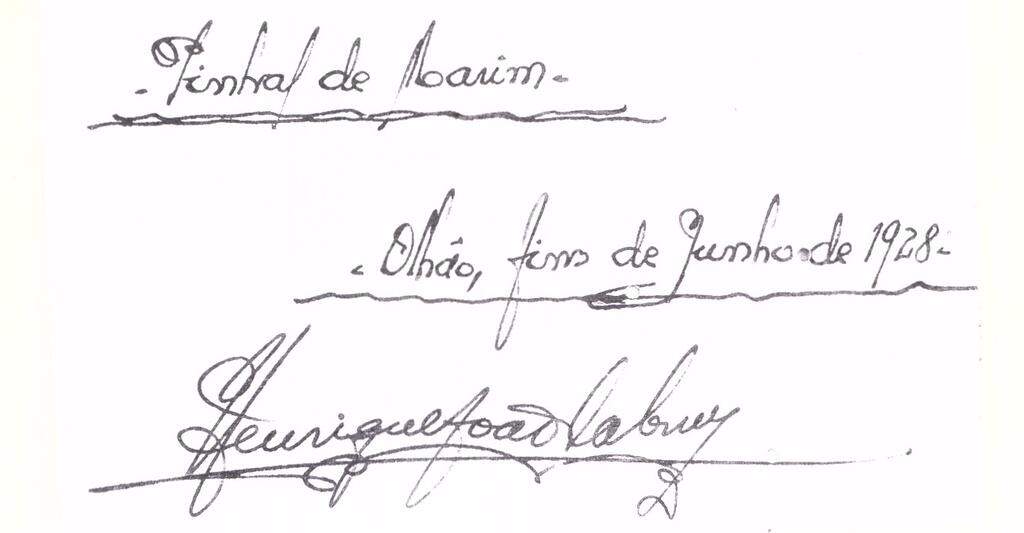 - Pinhal de Marim -
- Olhão, fins de Junho de 1928 -
Henrique João